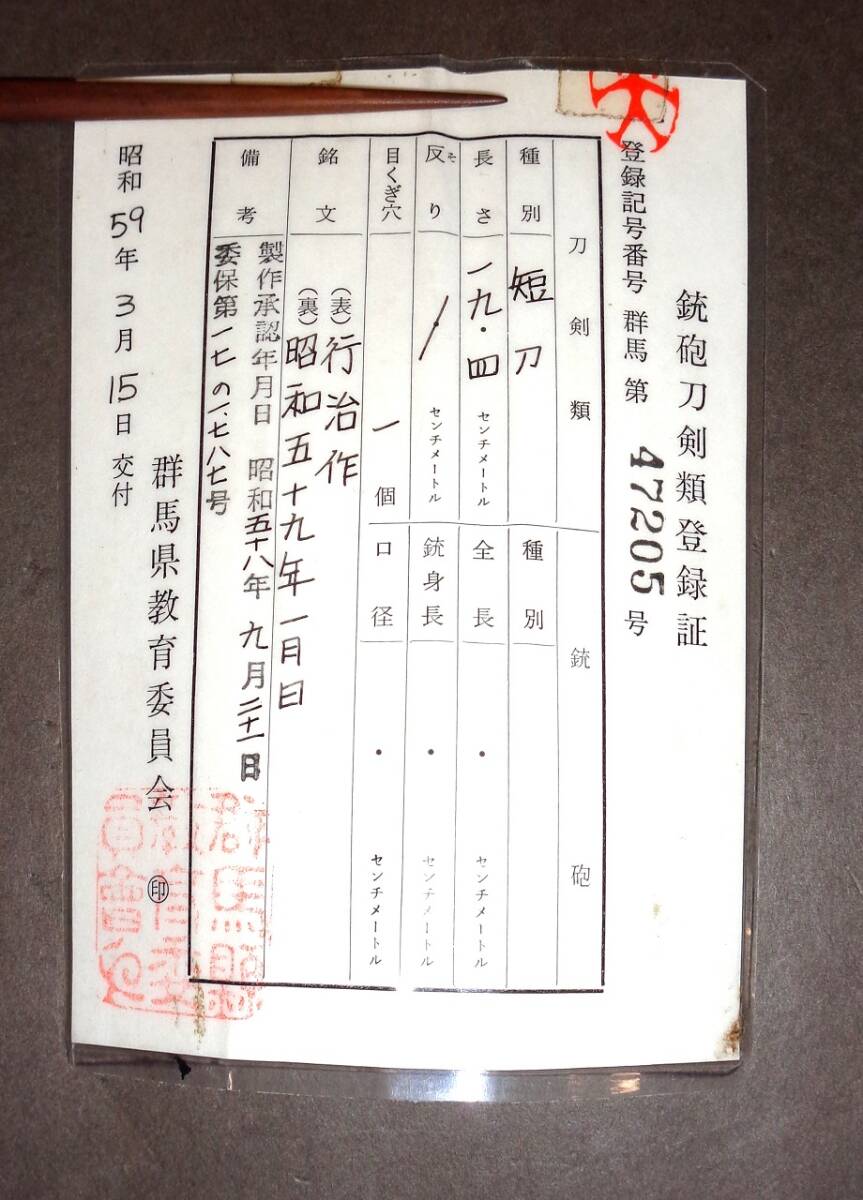 銃砲刀剣類登録証
登録記号番号 群馬 第 47205 号
刀剣類 銃砲
種別 短刀 種別
長さ 一九・四 センチメートル 全長 ・ センチメートル
反り そ ・ センチメートル 銃身長 ・ センチメートル
目くぎ穴 一 個 口径 ・ センチメートル
銘文 (表) 行治作
(裏) 昭和五十九年一月日
備考 製作承認年月日 昭和五十八年 九月二十一日
委保第一七の一、七八七号
群馬県教育委員会 ㊞
昭和59年3月15日交付